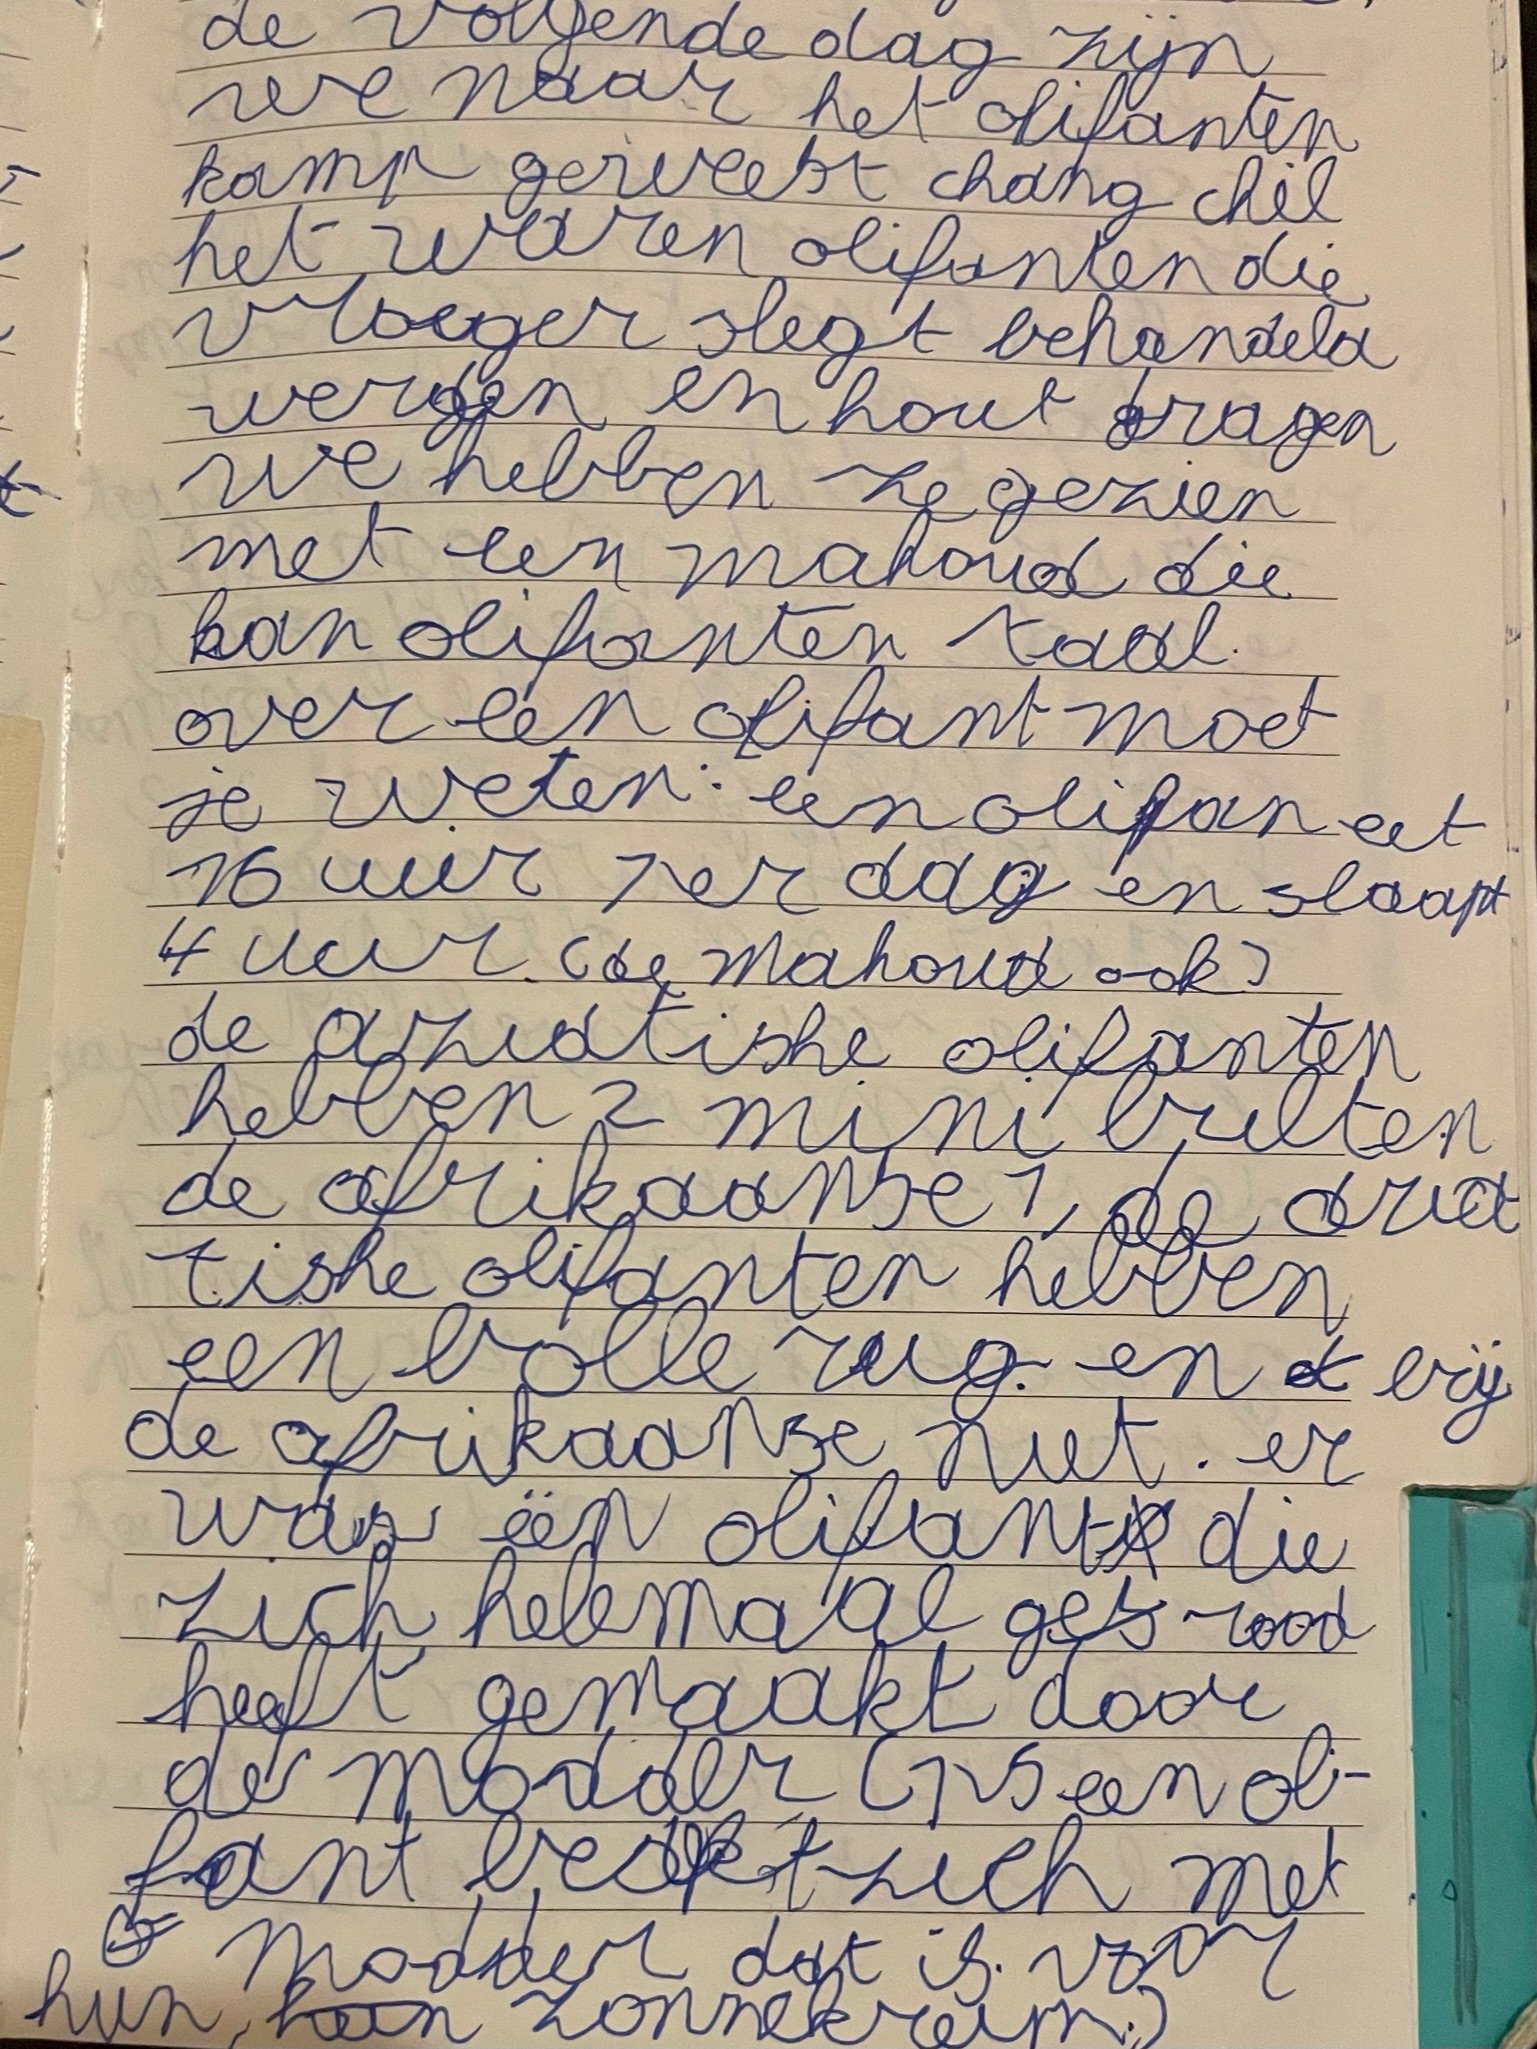 de volgende dag zijn
we naar het olifanten
kamp geweest chang chil
het waren olifanten die
vroeger slegt behandeld
werden en hout dragen
we hebben ze gezien
met een mahoud die
kan olifanten taal.
over een olifant moet
je weten: een olifan eet
16 uur per dag en slaapt
4 uur. (de mahoud ook)
de aziatishe olifanten
hebben 2 mini bulten
de afrikaanse 1, de azia
tishe olifanten hebben
een bolle rug. en bij
de afrikaanse niet. er
was één olifant die
zich helemaal rood
heeft gemaakt door
de modder (ps een oli-
fant bedekt zich met
modder dat is voor
hun, zonnekreim.)